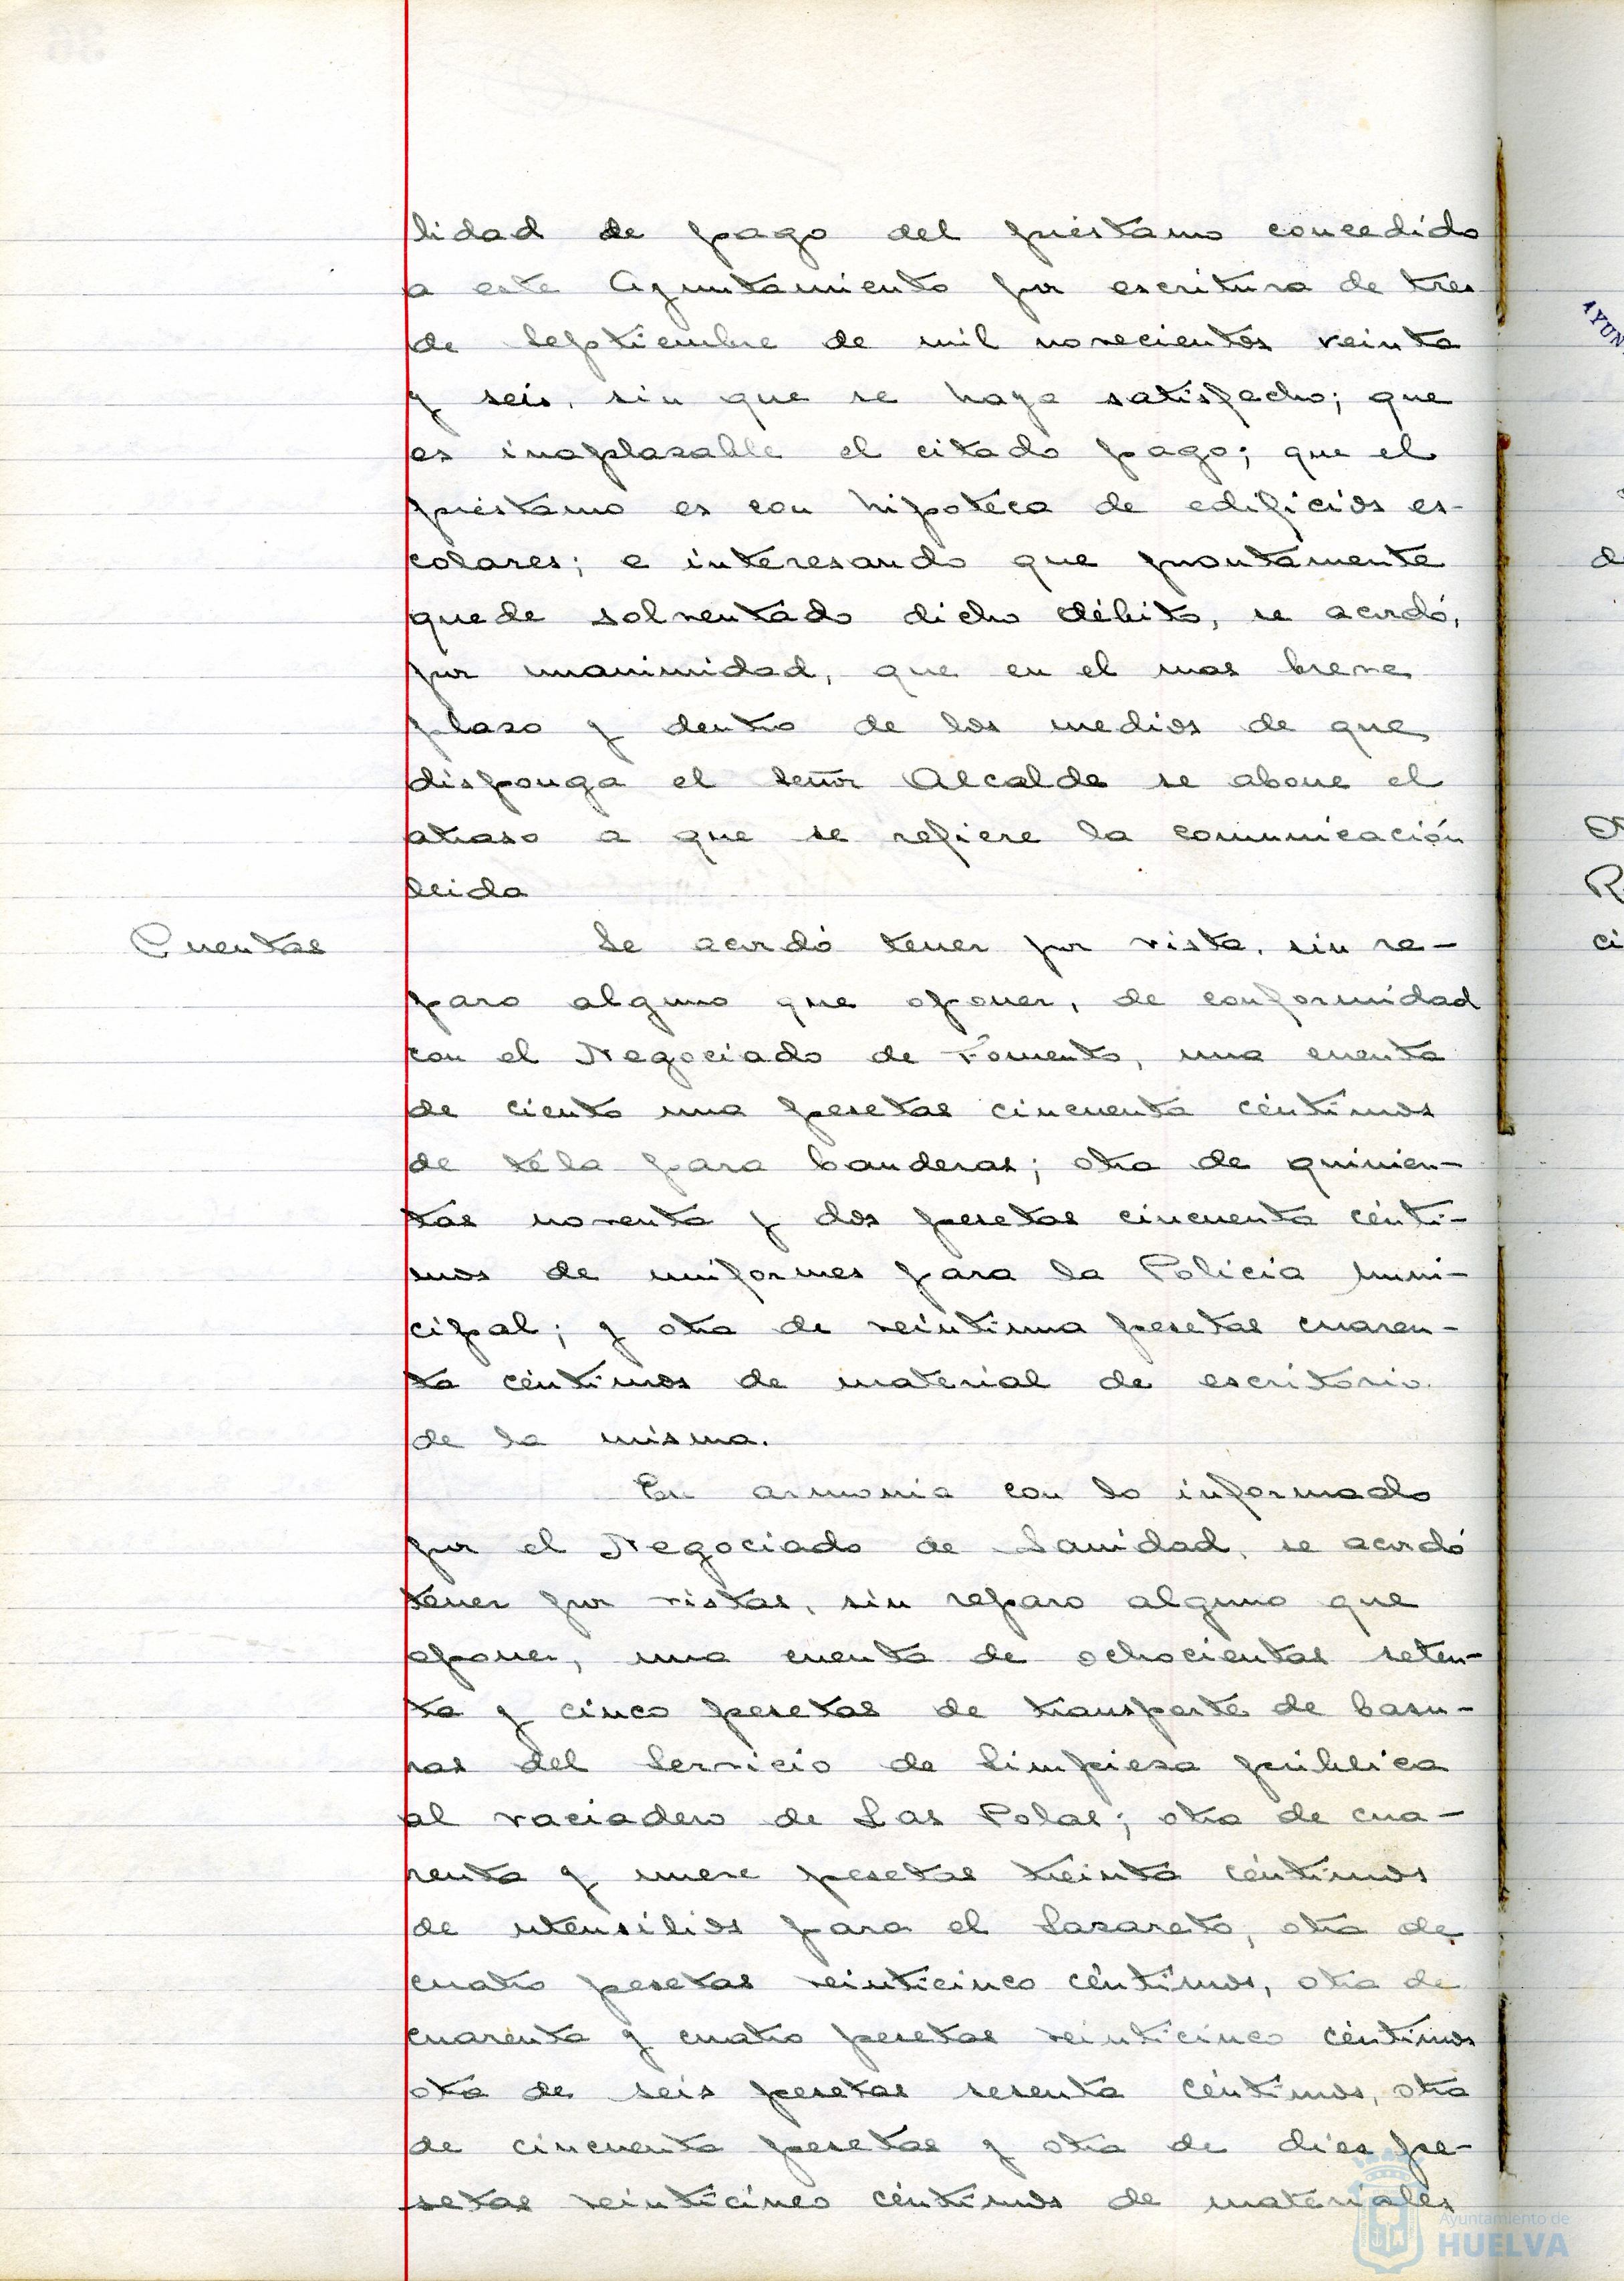 lidad de pago del préstamo concedido
a este Ayuntamiento por escritura de tres
de Septiembre de mil novecientos veinte
y seis, sin que se haya satisfecho; que
es inaplazable el citado pago; que el
préstamo es con hipoteca de edificios es-
colares; e interesando que prontamente
quede solventado dicho débito, se acordó,
por unanimidad, que en el mas breve
plazo y dentro de los medios de que
disponga el señor Alcalde se abone el
atraso a que se refiere la comunicación
leida
Cuentas
Se acordó tener por vista, sin re-
paro alguno que oponer, de conformidad
con el Negociado de Fomento, una cuenta
de ciento una pesetas cincuenta céntimos
de tela para banderas; otra de quinien-
tas noventa y dos pesetas cincuenta cénti-
mos de uniformes para la Policia Muni-
cipal; y otra de veintiuna pesetas cuaren-
ta céntimos de material de escritorio
de la misma.
En armonia con lo informado
por el Negociado de Sanidad, se acordó
tener por vistas, sin reparo alguno que
oponer, una cuenta de ochocientas seten-
ta y cinco pesetas de transporte de basu-
ras del Servicio de Limpieza pública
al vaciadero de Las Polas; otra de cua-
renta y nueve pesetas treinta céntimos
de utensilios para el Lazareto, otra de
cuatro pesetas veinticinco céntimos, otra de
cuarenta y cuatro pesetas veinticinco céntimos
otra de seis pesetas sesenta céntimos, otra
de cincuenta pesetas y otra de diez pe-
setas veinticinco céntimos de materiales
AYUN
de
R
ci
Ayuntamiento de
HUELVA